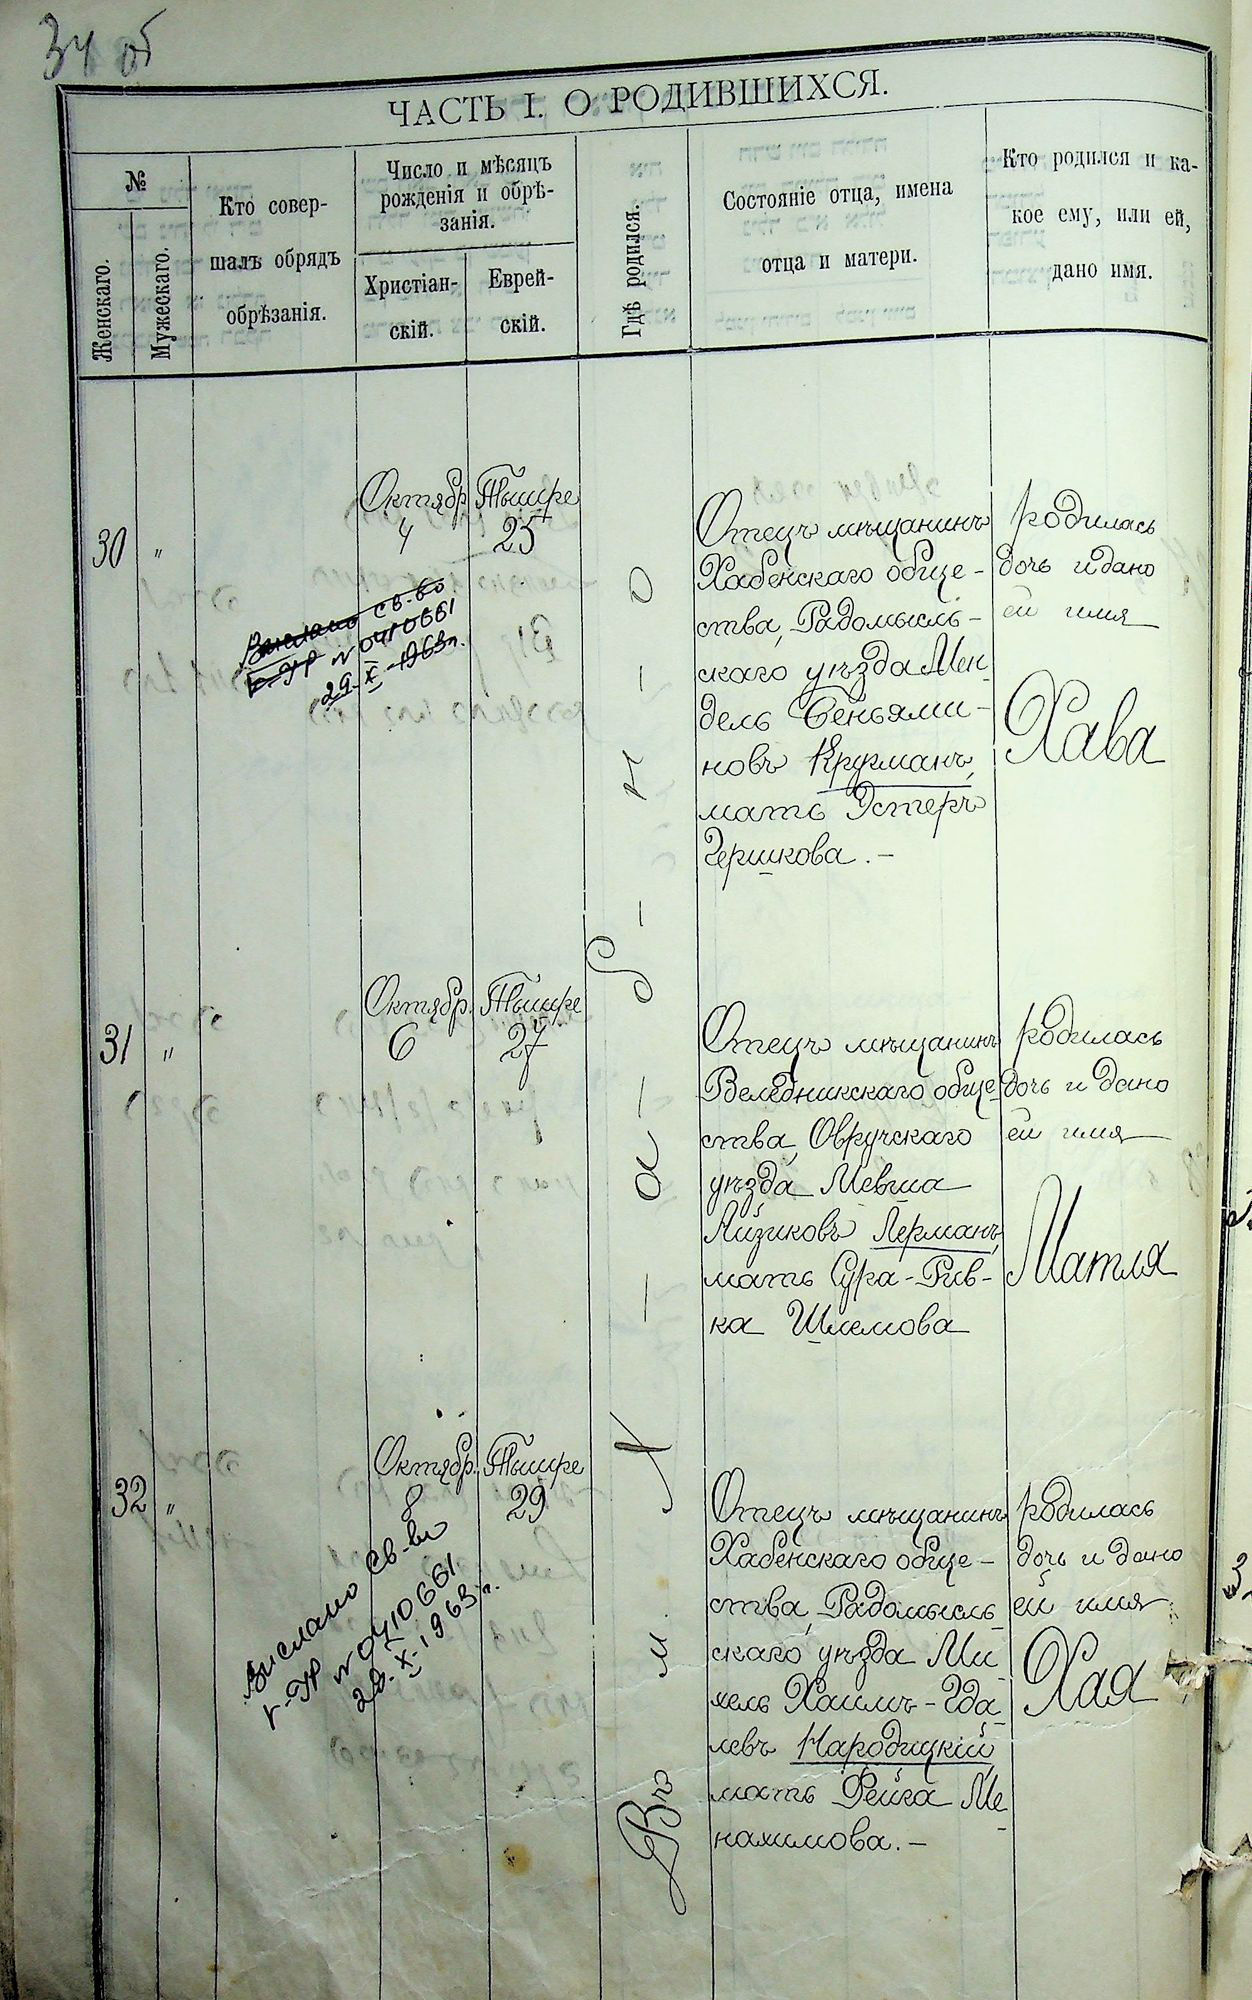 34 об
ЧАСТЬ I. О РОДИВШИХСЯ.
№
Женскаго.
Мужескаго.
Кто совер-
шалъ обрядъ
обрѣзанія.
Число и мѣсяцъ
рожденія и обрѣ-
занія.
Христіан-
скій.
Еврей-
скій.
Гдѣ родился.
Состояніе отца, имена
отца и матери.
Кто родился и ка-
кое ему, или ей,
дано имя.
30
"
Октябр
4
Тышре
25
Выслано св-во
V-ГР № 0410661
29.X-1963г.
Отецъ мѣщанинъ
Хабенскаго обще-
ства, Радомысль-
скаго уѣзда Мен-
дель Беньями-
новъ Кругманъ,
мать Эстеръ
Гершкова.-
родилась
дочь и дано
ей имя
Хава
31
"
Октябр.
6
Тышре
27
Отецъ мѣщанинъ
Веледникскаго обще-
ства, Овручскаго
уѣзда Мевша
Айзиковъ Лерманъ,
мать Сура-Рив-
ка Шлемова
родилась
дочь и дано
ей имя
Матля
32
"
Октябр.
8
Тышре
29
Вислано св-во
V-ГР № 0410661
29.X-1963г.
Отецъ мѣщанинъ
Хабенскаго обще-
ства, Радомысль
скаго уѣзда Ми-
хель Хаимъ-Гда-
левъ Народицкій,
мать Фейга Ме-
нахимова.-
родилась
дочь и дано
ей имя
Хая
Въ м. Х-а-б-н-о